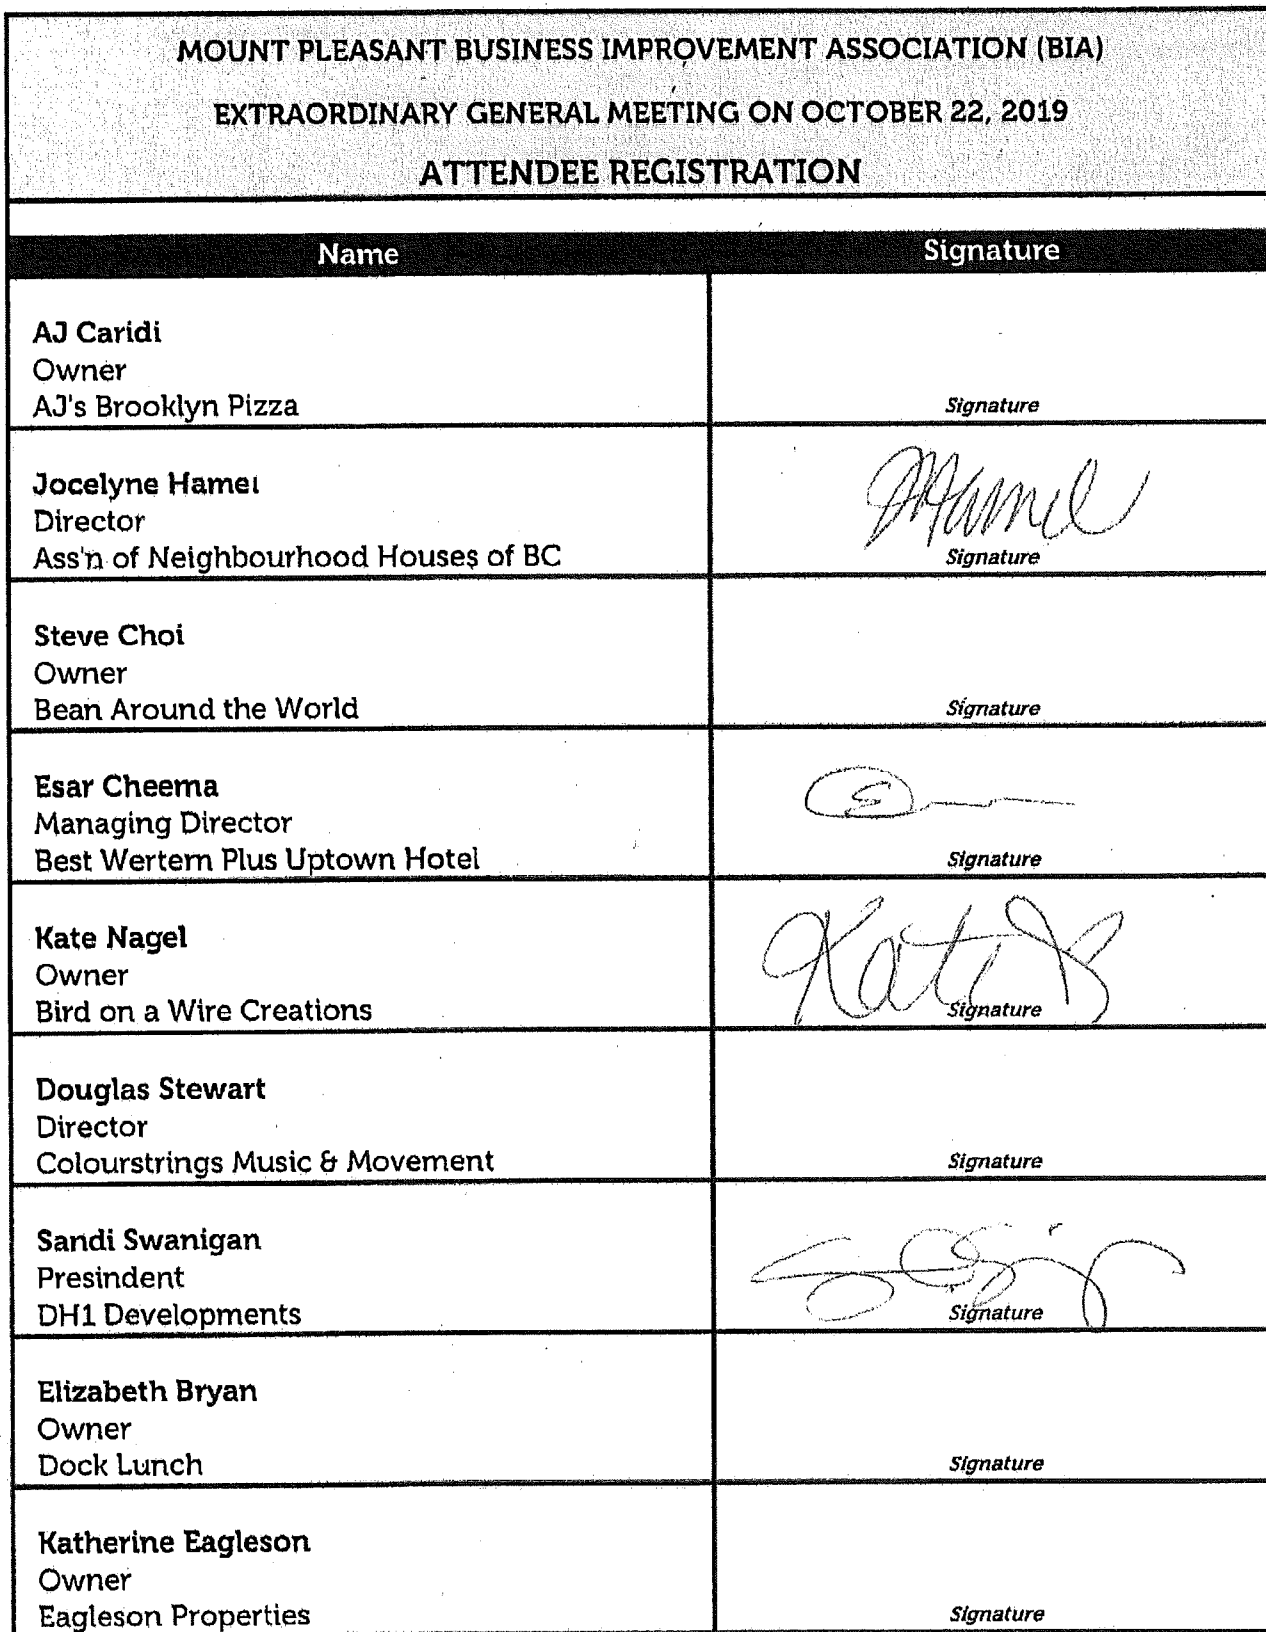 MOUNT PLEASANT BUSINESS IMPROVEMENT ASSOCIATION (BIA)
EXTRAORDINARY GENERAL MEETING ON OCTOBER 22, 2019
ATTENDEE REGISTRATION
Name Signature
AJ Caridi
Owner
AJ's Brooklyn Pizza Signature
Jocelyne Hamel
Director
Ass'n of Neighbourhood Houses of BC Signature
Steve Choi
Owner
Bean Around the World Signature
Esar Cheema
Managing Director
Best Wertern Plus Uptown Hotel Signature
Kate Nagel
Owner
Bird on a Wire Creations Signature
Kate
Douglas Stewart
Director
Colourstrings Music & Movement Signature
Sandi Swanigan
Presindent
DH1 Developments Signature
Elizabeth Bryan
Owner
Dock Lunch Signature
Katherine Eagleson
Owner
Eagleson Properties Signature